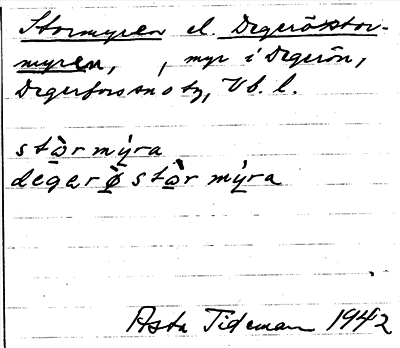 Stormyren el. Degeröstor-
myren, , myr i Degerön,
Degerfors sn o ty, Vb. l.
stòr mýra
degar ǿ stòr mýra
Asta Tideman 1942